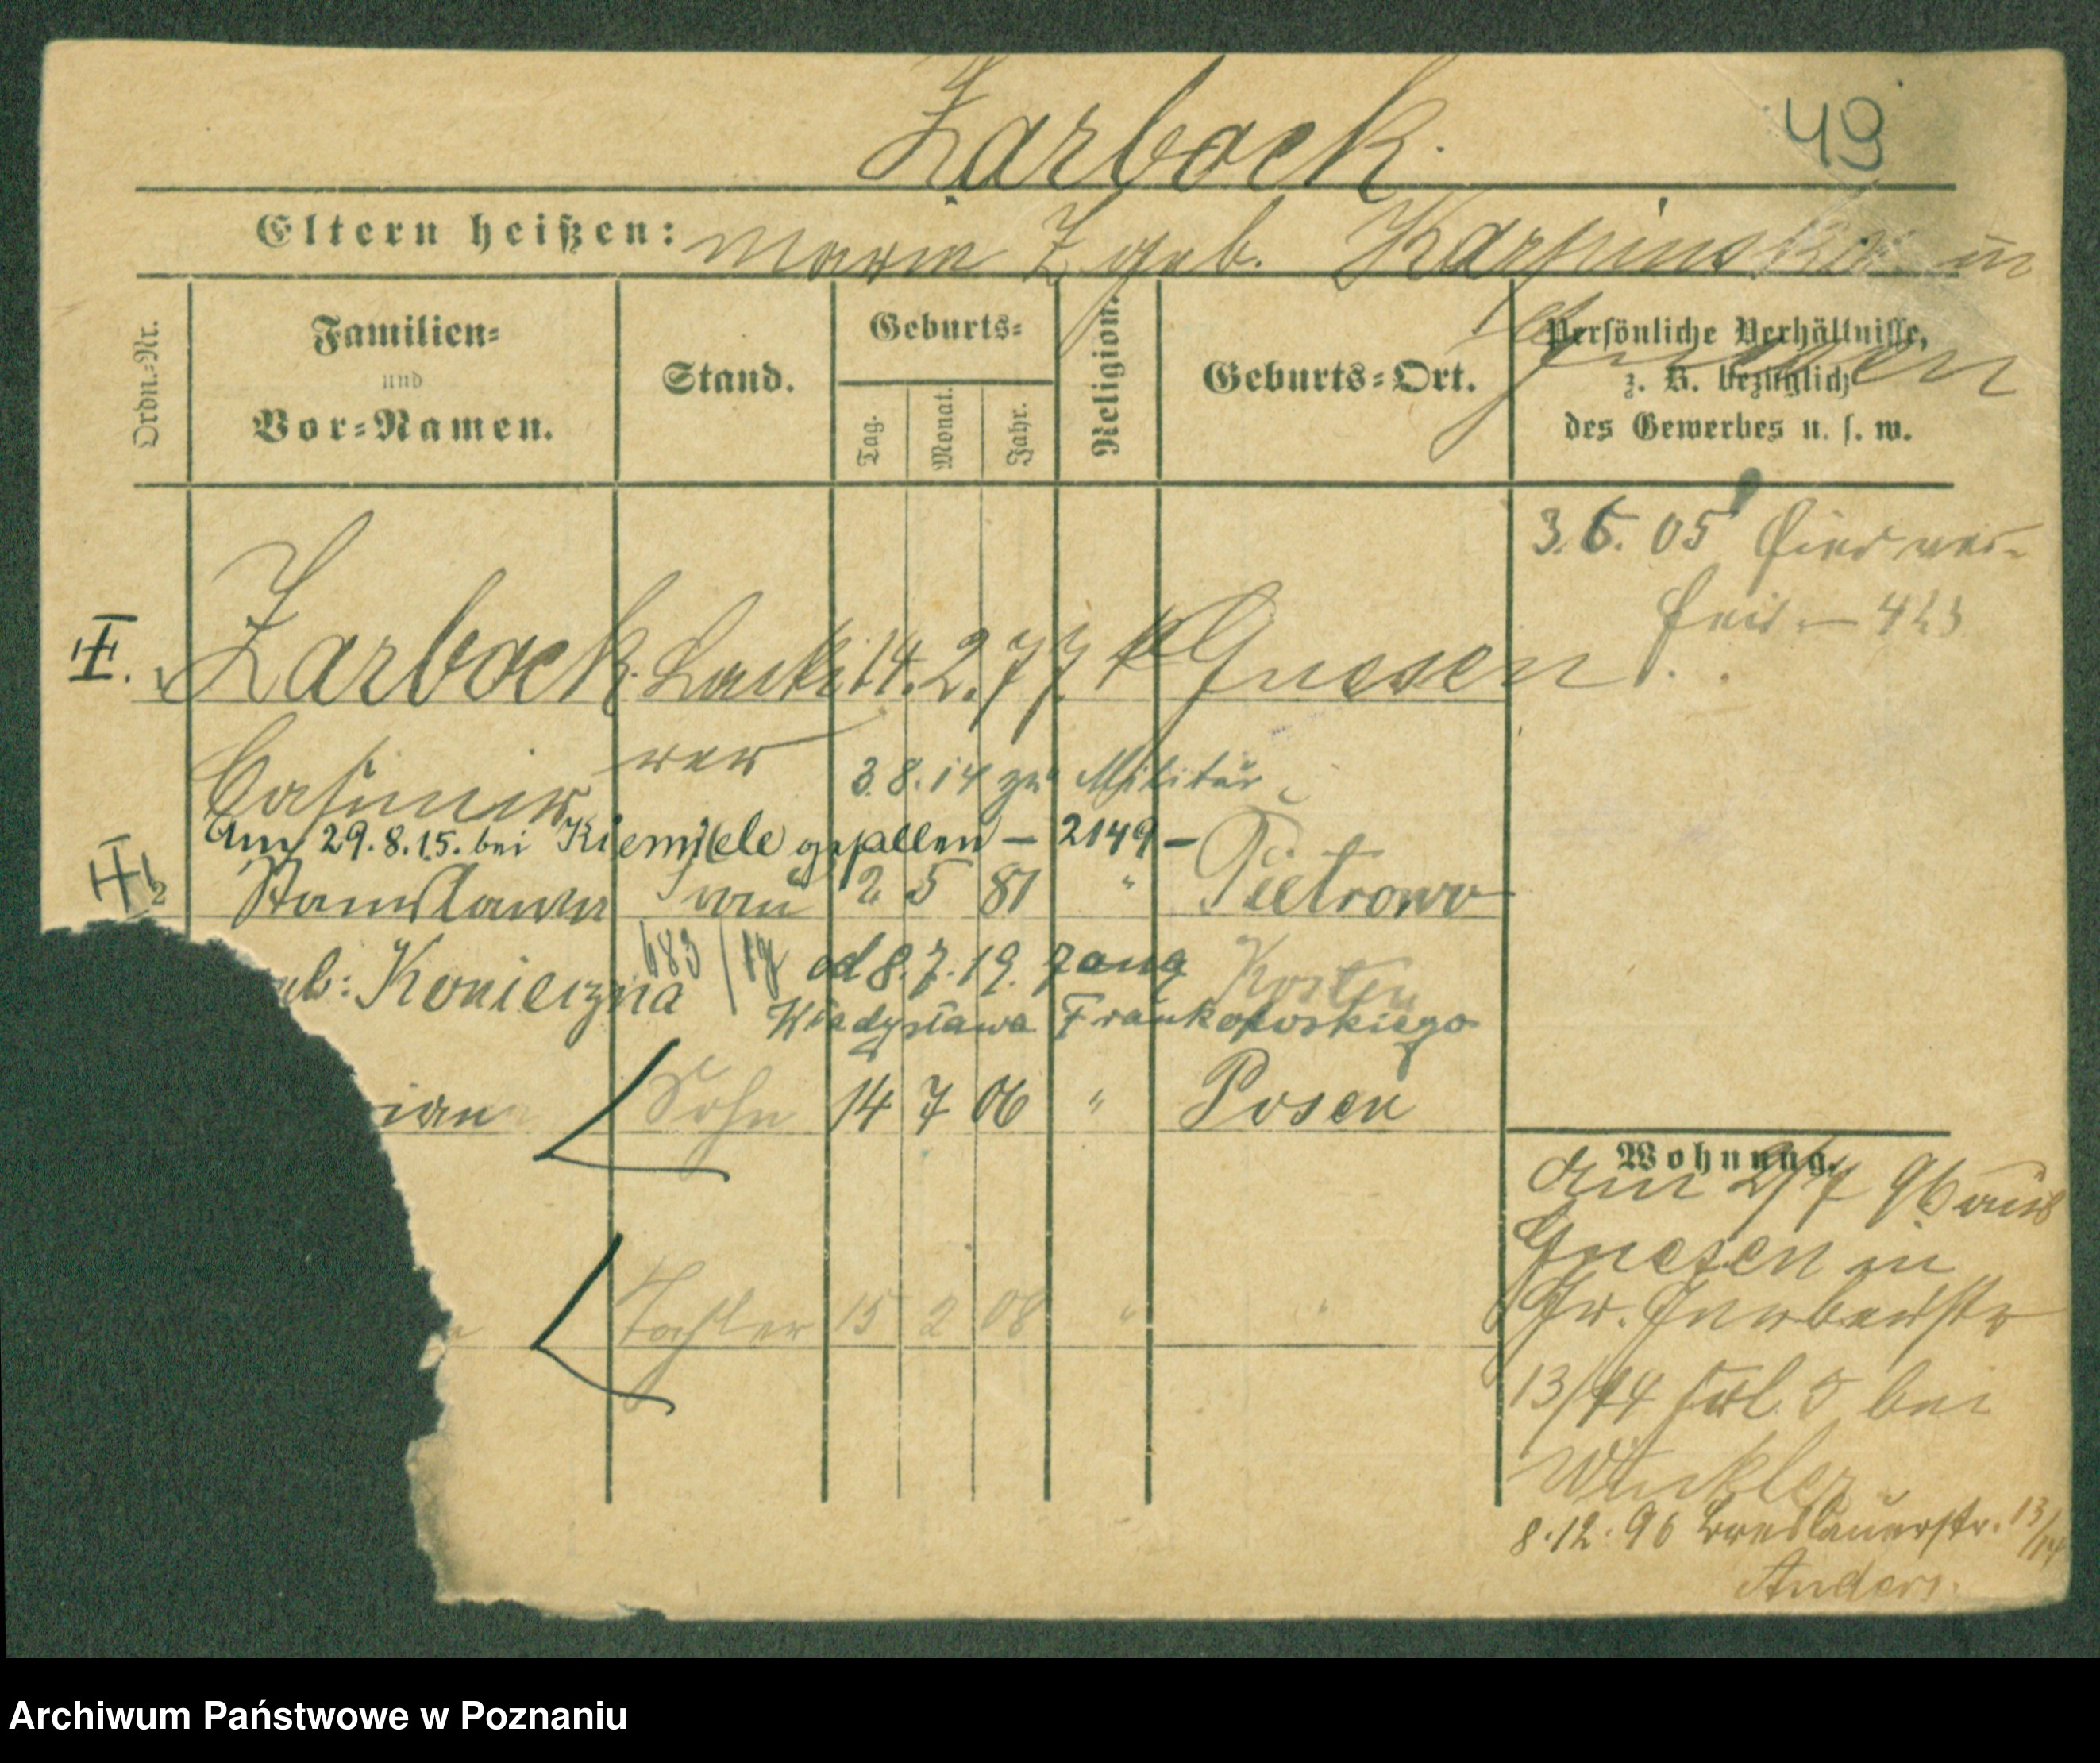 Zarbock.
49
Eltern heißen: Marie Z geb. Karpinska in
Gnesen
Ordn.-Nr.
Familien-
und
Vor-Namen.
Stand.
Geburts-
Tag.
Monat.
Jahr.
Religion.
Geburts-Ort.
Persönliche Verhältnisse,
z. B. bezüglich
des Gewerbes u. s. w.
3. 6. 05
423
Zarbock. Lackie 14. 2. 77. k Gnesen
Casimir rer 3. 8. 14 zu Militär
Am 29. 8. 15. bei gefallen – 2149 –
2 Stanislawa Frau 2 5 81 " Pietrowo
geb: Konieczna 683/19 od 8. 7. 19. żoną Kosten
Władysława Frankowskiego
ian Sohn 14 7 06 " Posen
Tochter 15 2 08 " "
Wohnung.
Am 2/7 96 aus
Gnesen in
Gr. Gerberstr
13/14 bei
Winkler
8. 12. 96 Breslauerstr. 13/14
Anders.
Archiwum Państwowe w Poznaniu